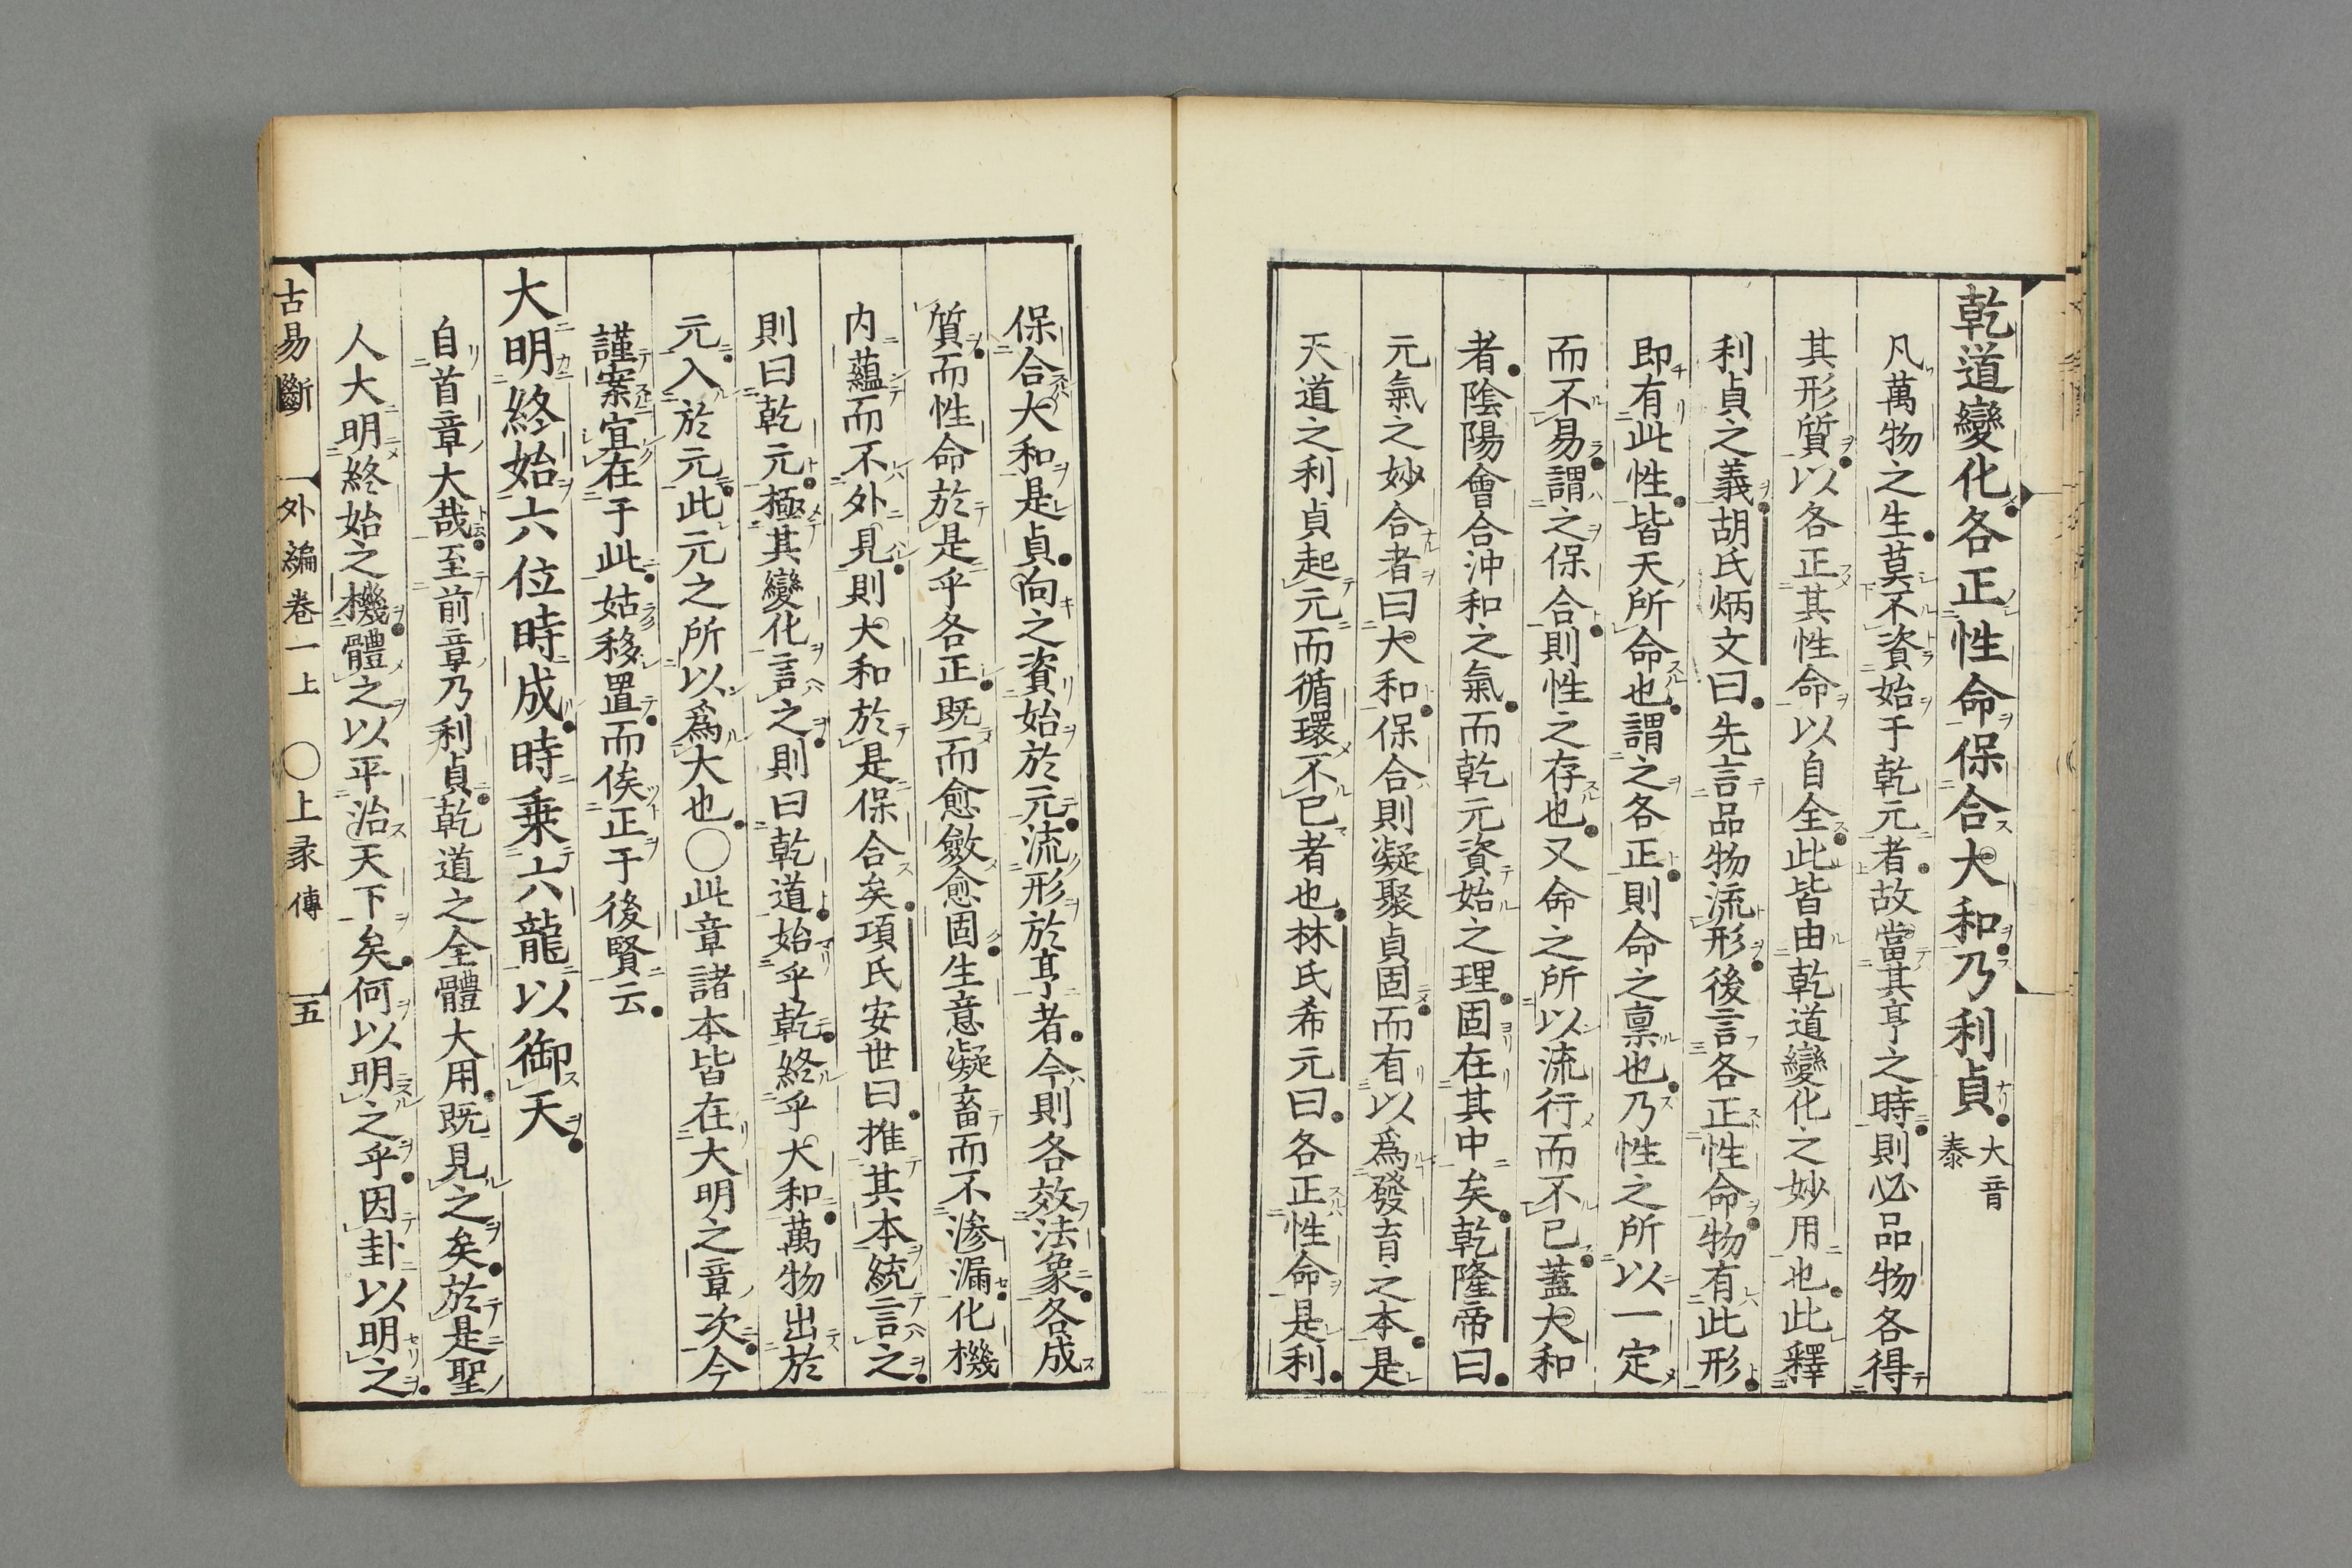 乾道變化各正性命保合大和乃利貞大音泰
凡萬物之生莫不資始于乾元者故當其亨之時則必品物各得
其形質以各正其性命以自全此皆由乾道變化之妙用也此釋
利貞之義胡氏炳文曰先言品物流形後言各正性命物有此形
即有此性皆天所命也謂之各正則命之稟也乃性之所以一定
而不易謂之保合則性之存也又命之所以流行而不已蓋大和
者陰陽會合沖和之氣而乾元資始之理固在其中矣乾隆帝曰
元氣之妙合者曰大和保合則凝聚貞固而有以爲發育之本是
天道之利貞起元而循環不已者也林氏希元曰各正性命是利
保合大和是貞向之資始於元流形於亨者今則各效法象各成
質而性命於是乎各正既而愈斂愈固生意凝畜而不滲漏化機
内蘊而不外見則大和於是保合矣項氏安世曰推其本統言之
則曰乾元極其變化言之則曰乾道始乎乾終乎大和萬物出於
元入於元此元之所以爲大也〇此章諸本皆在大明之章次今
謹案宜在于此姑移置而俟正于後賢云
大明終始六位時成時乗六龍以御天
自首章大哉至前章乃利貞乾道之全體大用既見之矣於是聖
人大明終始之機體之以平治天下矣何以明之乎因卦以明之
古易斷 外編卷一上 〇上彖傳 五